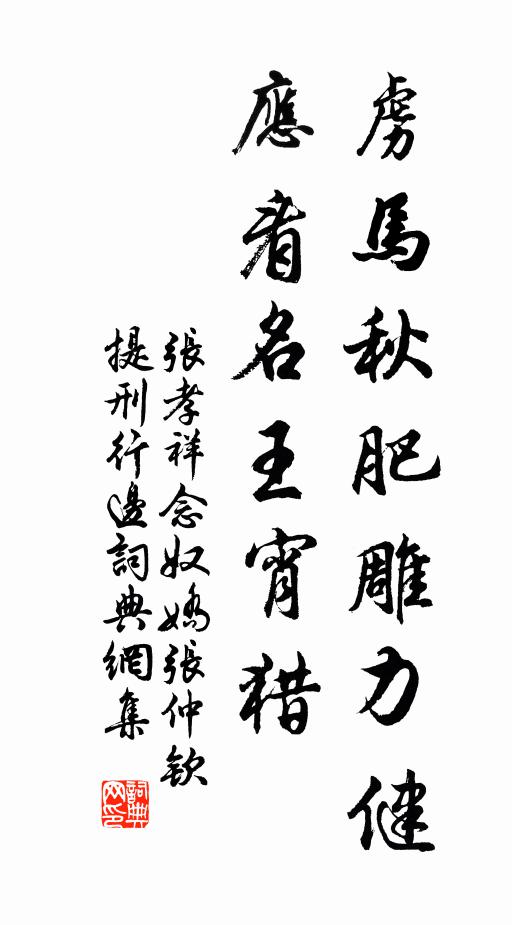 虜馬秋肥雕力健
應看名王宵猎
張孝祥念奴嬌張仲欽
提刑行邊詞典網集
詞典网印